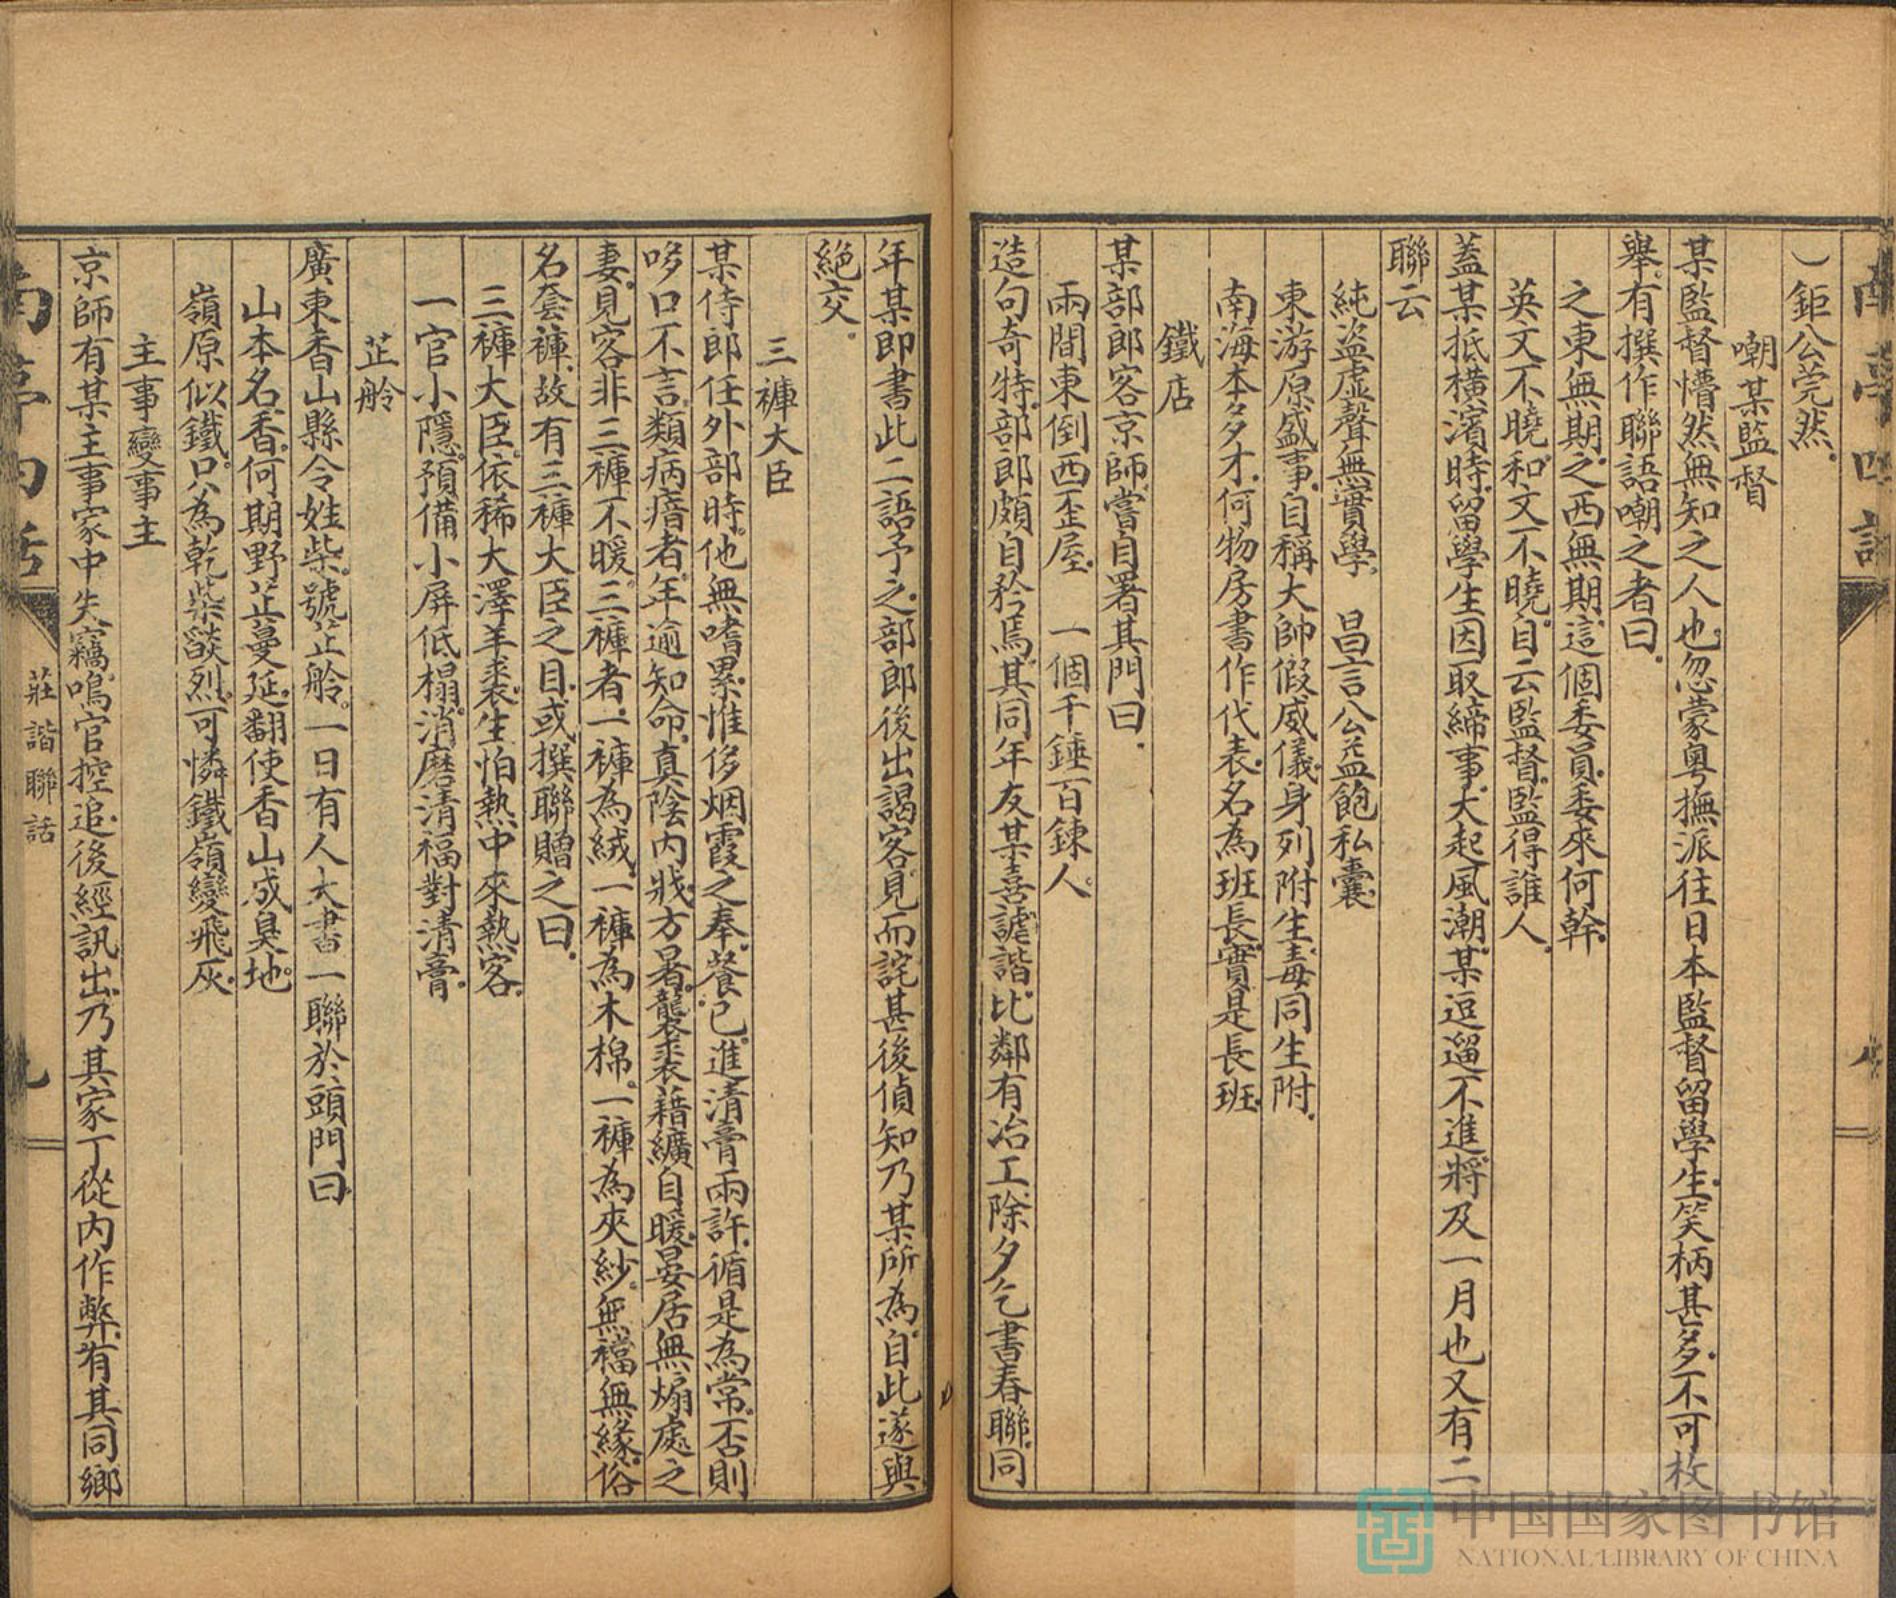 南亭四話
八
）鉅公莞然。
嘲某監督
某監督懵然無知之人也。忽蒙粵撫派往日本監督留學生。笑柄甚多。不可枚
舉。有撰作聯語嘲之者曰。
之東無期。之西無期。這個委員。委來何幹。
英文不曉。和文不曉。自云監督。監得誰人。
蓋某抵橫濱時。留學生因取締事。大起風潮。某逗遛不進。將及一月也。又有二
聯云
純盜虛聲無實學。　昌言公益飽私囊。
東游原盛事。自稱大帥假威儀。身列附生。毒同生附。
南海本多才。何物房書作代表。名為班長。實是長班。
鐵店
某部郎客京師。嘗自署其門曰。
兩間東倒西歪屋。　一個千錘百鍊人。
造句奇特。部郎頗自矜焉。其同年友某喜謔諧。比鄰有冶工。除夕乞書春聯。同
年某即書此二語予之。部郎後出謁客。見而詫甚。後偵知乃某所為。自此遂與
絕交。
三褲大臣
某侍郎任外部時。他無嗜累。惟侈烟霞之奉。餐已。進清膏兩許。循是為常。否則
哆口不言。類病瘖者。年逾知命。真陰內戕。方暑。襲裘藉纊自暖。晏居無煽處之
妻。見客非三褲不暖。三褲者。一褲為絨。一褲為木棉。一褲為夾紗。無襠無緣。俗
名套褲。故有三褲大臣之目。或撰聯贈之曰。
三褲大臣。依稀大澤羊裘。生怕熱中來熱客。
一官小隱。預備小屏低榻。消磨清福對清膏。
芷舲
廣東香山縣令姓柴。號芷舲。一日有人大書一聯於頭門曰
山本名香。何期野芷蔓延。翻使香山成臭地。
嶺原似鐵。只為乾柴燄烈。可憐鐵嶺變飛灰。
主事變事主
京師有某主事家中失竊。鳴官控追。後經訊出。乃其家丁從內作弊。有其同鄉
南亭四話
莊諧聯話
九
中国国家图书馆
NATIONAL LIBRARY OF CHINA